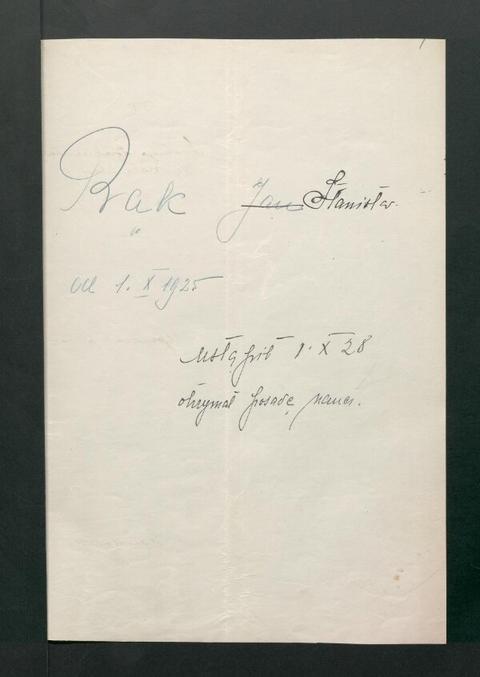 Bąk Jan Stanisław.
od 1. X 1925
ustąpił 1. X 28
otrzymał posadę naucz.